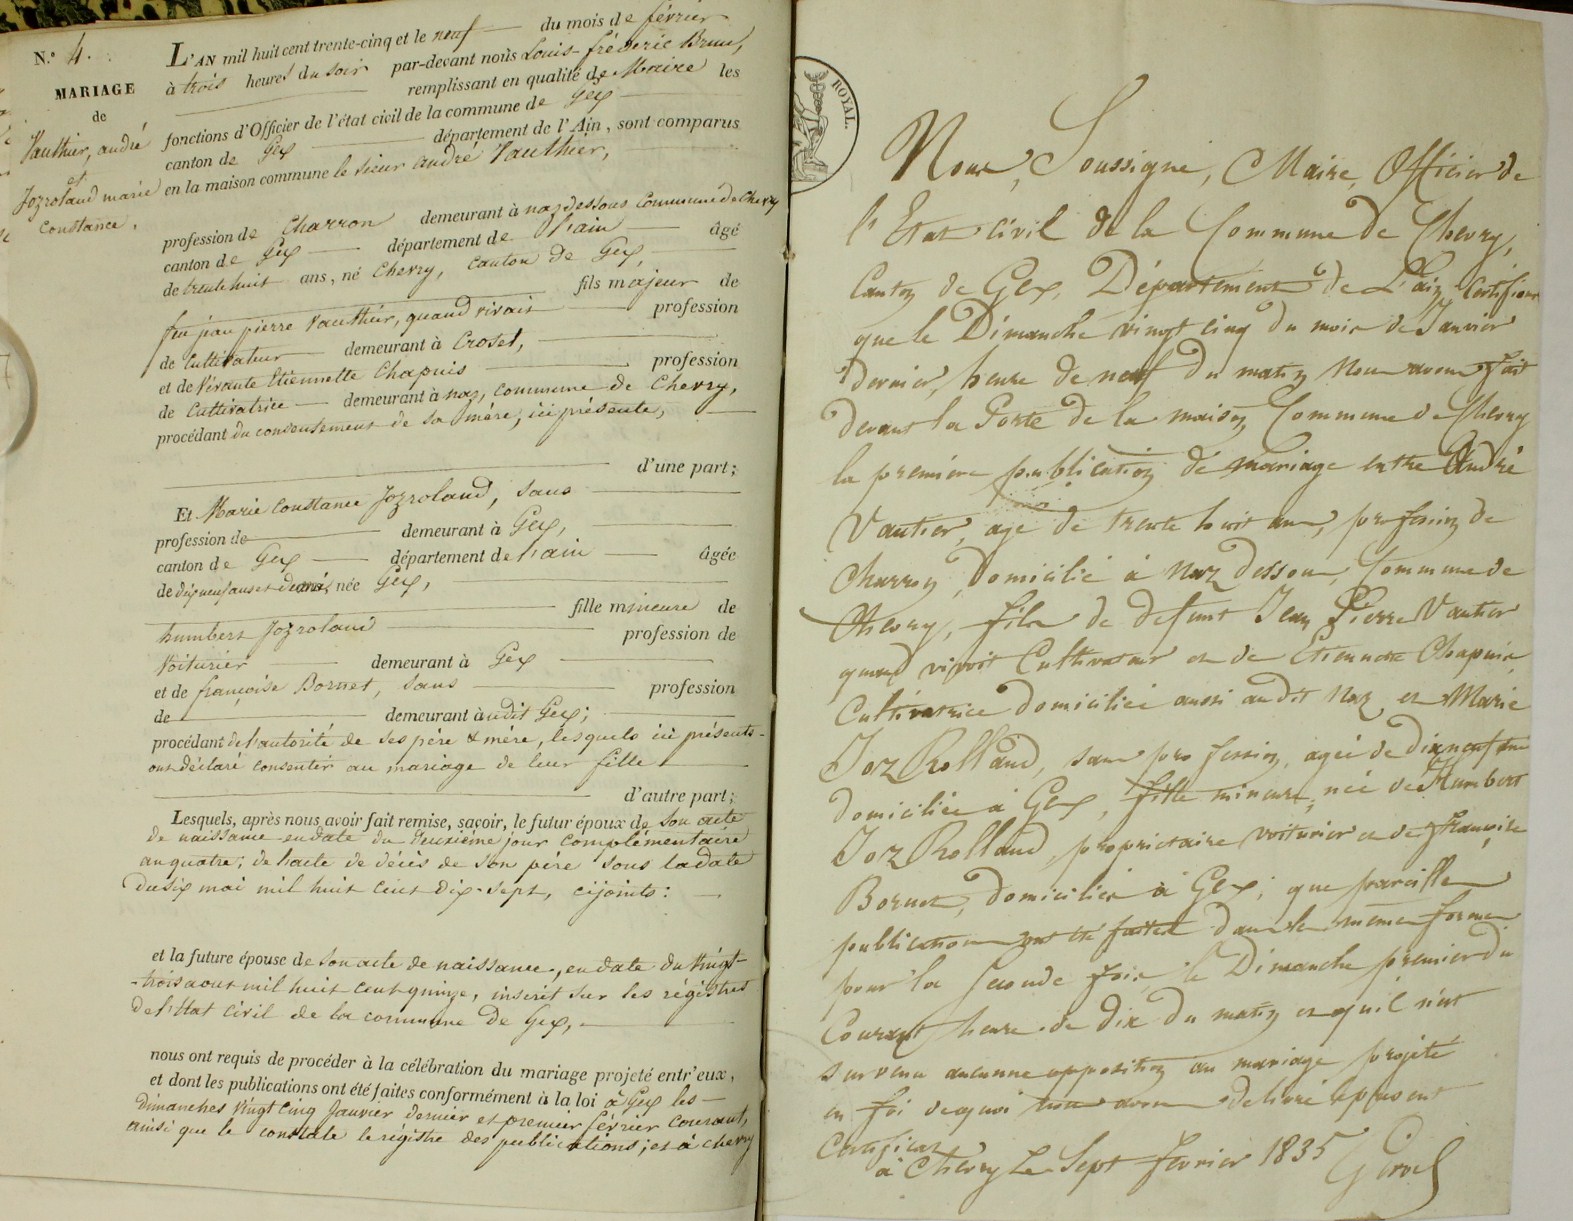 N.° 4.
MARIAGE
de
Vauthier, andré
et
Jozroland marie
Constance.
L'AN mil huit cent trente-cinq et le neuf du mois de février
à trois heures du soir par-devant nous Louis-fréderic Brun,
remplissant en qualité de Maire les
fonctions d'Officier de l'état civil de la commune de Gex
canton de Gex département de l'Ain, sont comparus
en la maison commune le sieur andré Vauthier,
profession de Charron demeurant à naz dessous commune de Chevry
canton de Gex département de l'ain âgé
de trente huit ans, né Chevry, canton de Gex,
fils majeur de
feu jean pierre Vauthier, quand vivait profession
de Cultivateur demeurant à Croset,
et de vivante Etiennette Chapuis profession
de Cultivatrice demeurant à naz, commune de Chevry,
procédant du consentement de sa mère, ici présente,
d'une part;
Et Marie Constance Jozroland, sans
profession de demeurant à Gex,
canton de Gex département de l'ain âgée
de dix neuf ans et demi, née Gex,
fille mineure de
humbert Jozroland profession de
Voiturier demeurant à Gex
et de françoise Bornet, sans profession
de demeurant audit Gex;
procédant de l'autorité de ses père & mère, lesquels ici présents
ont déclaré consentir au mariage de leur fille
d'autre part;
Lesquels, après nous avoir fait remise, savoir, le futur époux de son acte
de naissance en date du deuxième jour complémentaire
an quatre; de l'acte de décès de son père sous la date
du six mai mil huit cent dix-sept, cijoints:
et la future épouse de son acte de naissance, en date du vingt-
-trois aout mil huit cent quinze, inscrit sur les régistres
de l'Etat Civil de la commune de Gex,
nous ont requis de procéder à la célébration du mariage projeté entr'eux,
et dont les publications ont été faites conformément à la loi à Gex les
dimanches vingt cinq Janvier dernier et premier février courant,
ainsi que le constate le régistre des publications; et à chevry
ROYAL.
Nous, Soussigné, Maire, Officier de
l'Etat civil de la Commune de Chevry,
Canton de Gex, Département de L'ain, Certifions
que le Dimanche vingt cinq du mois de Janvier
dernier, heure de neuf du matin nous avons fait
devant la Porte de la maison Commune de Chevry
la première publication de mariage entre André
Vautier, age de trente huit ans, profession de
Charron, Domicilié à Naz dessous, Commune de
Chevry, fils de defunt Jean Pierre Vautier
quand vivoit Cultivateur et de Etiennette Chapuis
Cultivatrice domiciliée aussi audit Naz et Marie
Joz Rolland, sans profession, agée de dix neuf ans
domiciliée à Gex, fille mineure, née de Humbert
Joz Rolland, proprietaire voiturier et de françoise
Bornet, domiciliés à Gex; que pareille
publication ont été faites dans la même forme
pour la seconde fois le Dimanche premier du
Courant heure de dix du matin et qu'il n'est
survenu aucunne opposition au mariage projeté
en foi de quoi nous avons delivré le présent
Certificat
à Chevry Le Sept fevrier 1835